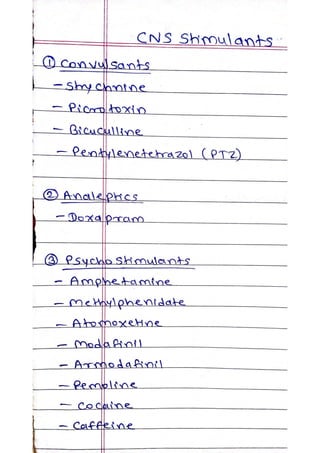 CNS Stimulants
① Convulsants
- Strychnine
- Picrotoxin
- Bicuculline
- Pentylenetetrazol (PTZ)
② Analeptics
- Doxapram
③ Psychostimulants
- Amphetamine
- Methylphenidate
- Atomoxetine
- Modafinil
- Armodafinil
- Pemoline
- Cocaine
- Caffeine